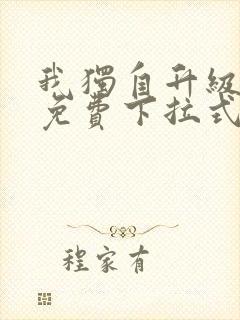 我獨自升級
免費下拉式
程家有